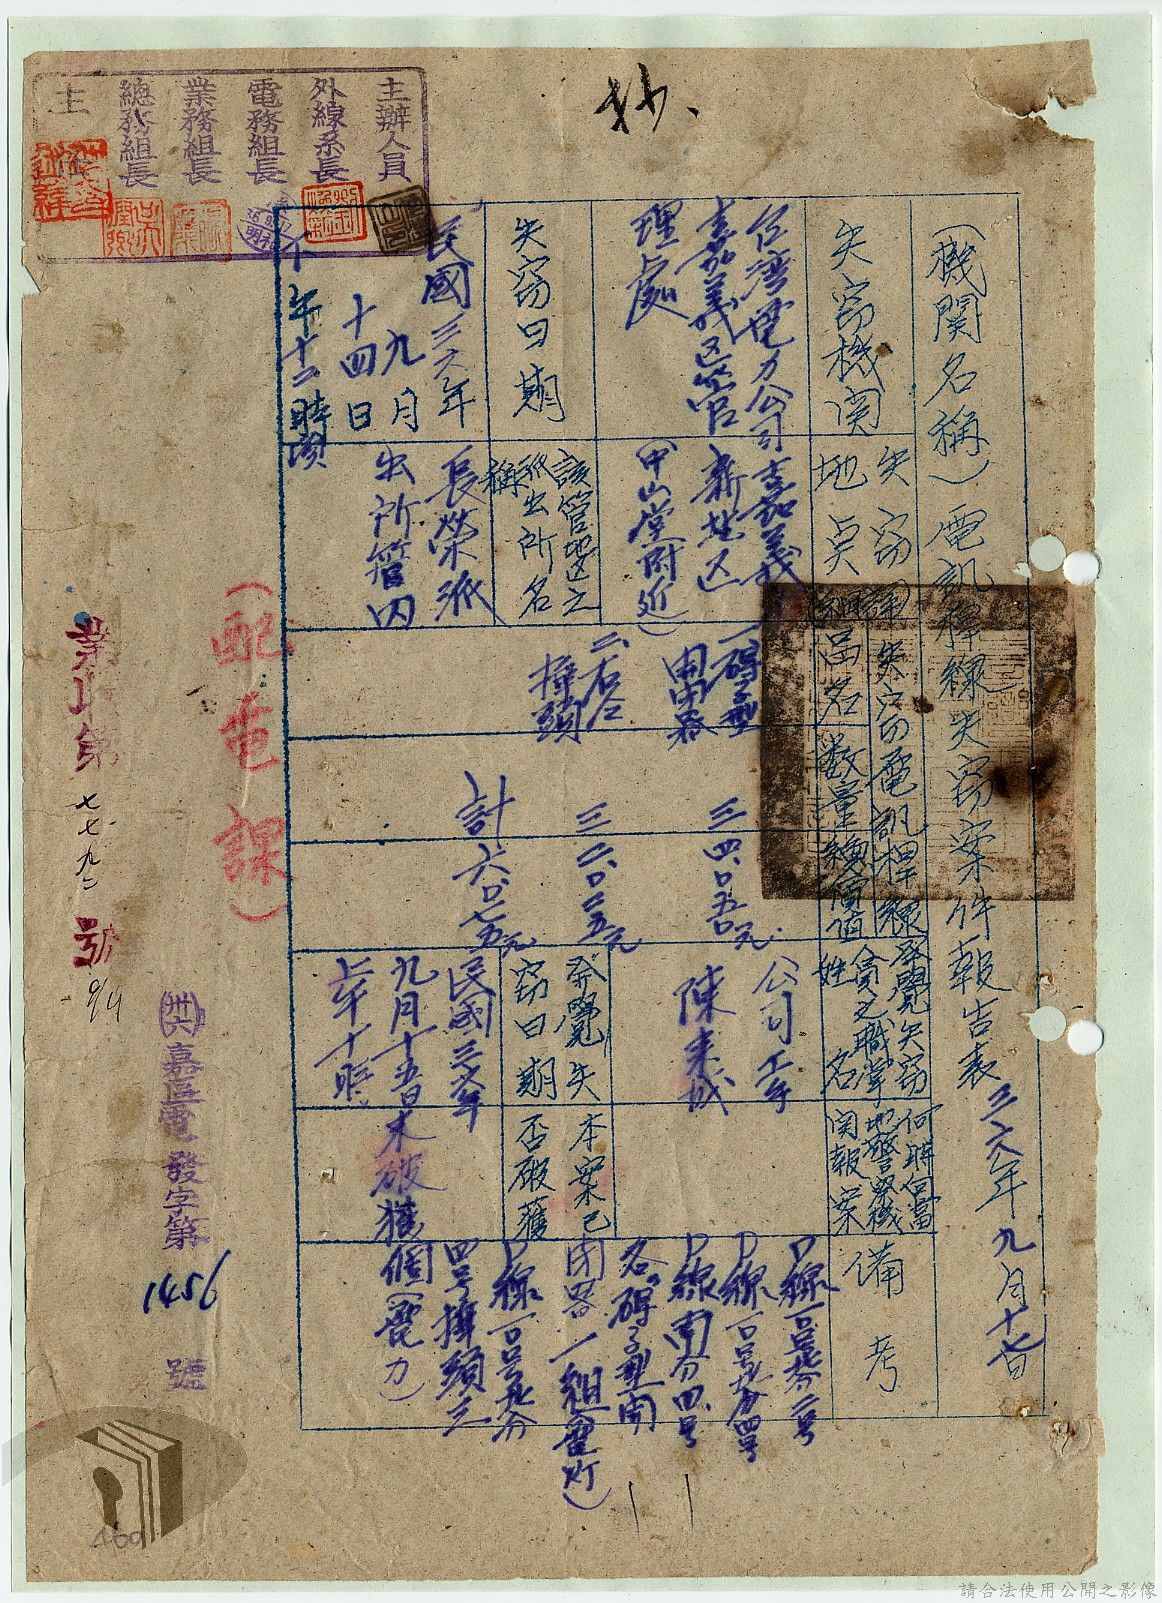 抄、
主辦人員
外線系長
電務組長
業務組長
總務組長
主
(機関名稱)電訊桿線失窃案件報告表 三六年九月十七日
失窃機関
失窃地点
失窃電訊桿線詳細
品名
数量
總價值
發覺失窃員之職掌姓名
何時何當地警察機関報案
備考
台湾電力公司
嘉義区管
理處
嘉義
新北区
(中山堂附近)
一、碍子型
開閉器
三
四〇五〇元
公司工手
陳来城
二、右仝
擇頭
三
二〇二五元
計
六〇七五元
失窃日期
該管地区之派出所名稱
發覺失窃日期
本案已否破獲
民國三六年
九月
十四日
下午十二時頃
長榮派
出所管内
民國三六年
九月十五日
上午十時
未破獲
D線一号北分二号
D線一号北分四号
D線南分四号
各碍子型開
閉器一組(電灯)
D線一号北分
四号擇頭三
個(電力)
(配電課)
業収第七七九二號
9/4
卅六嘉區電發字第1456號
460
請合法使用公開之影像